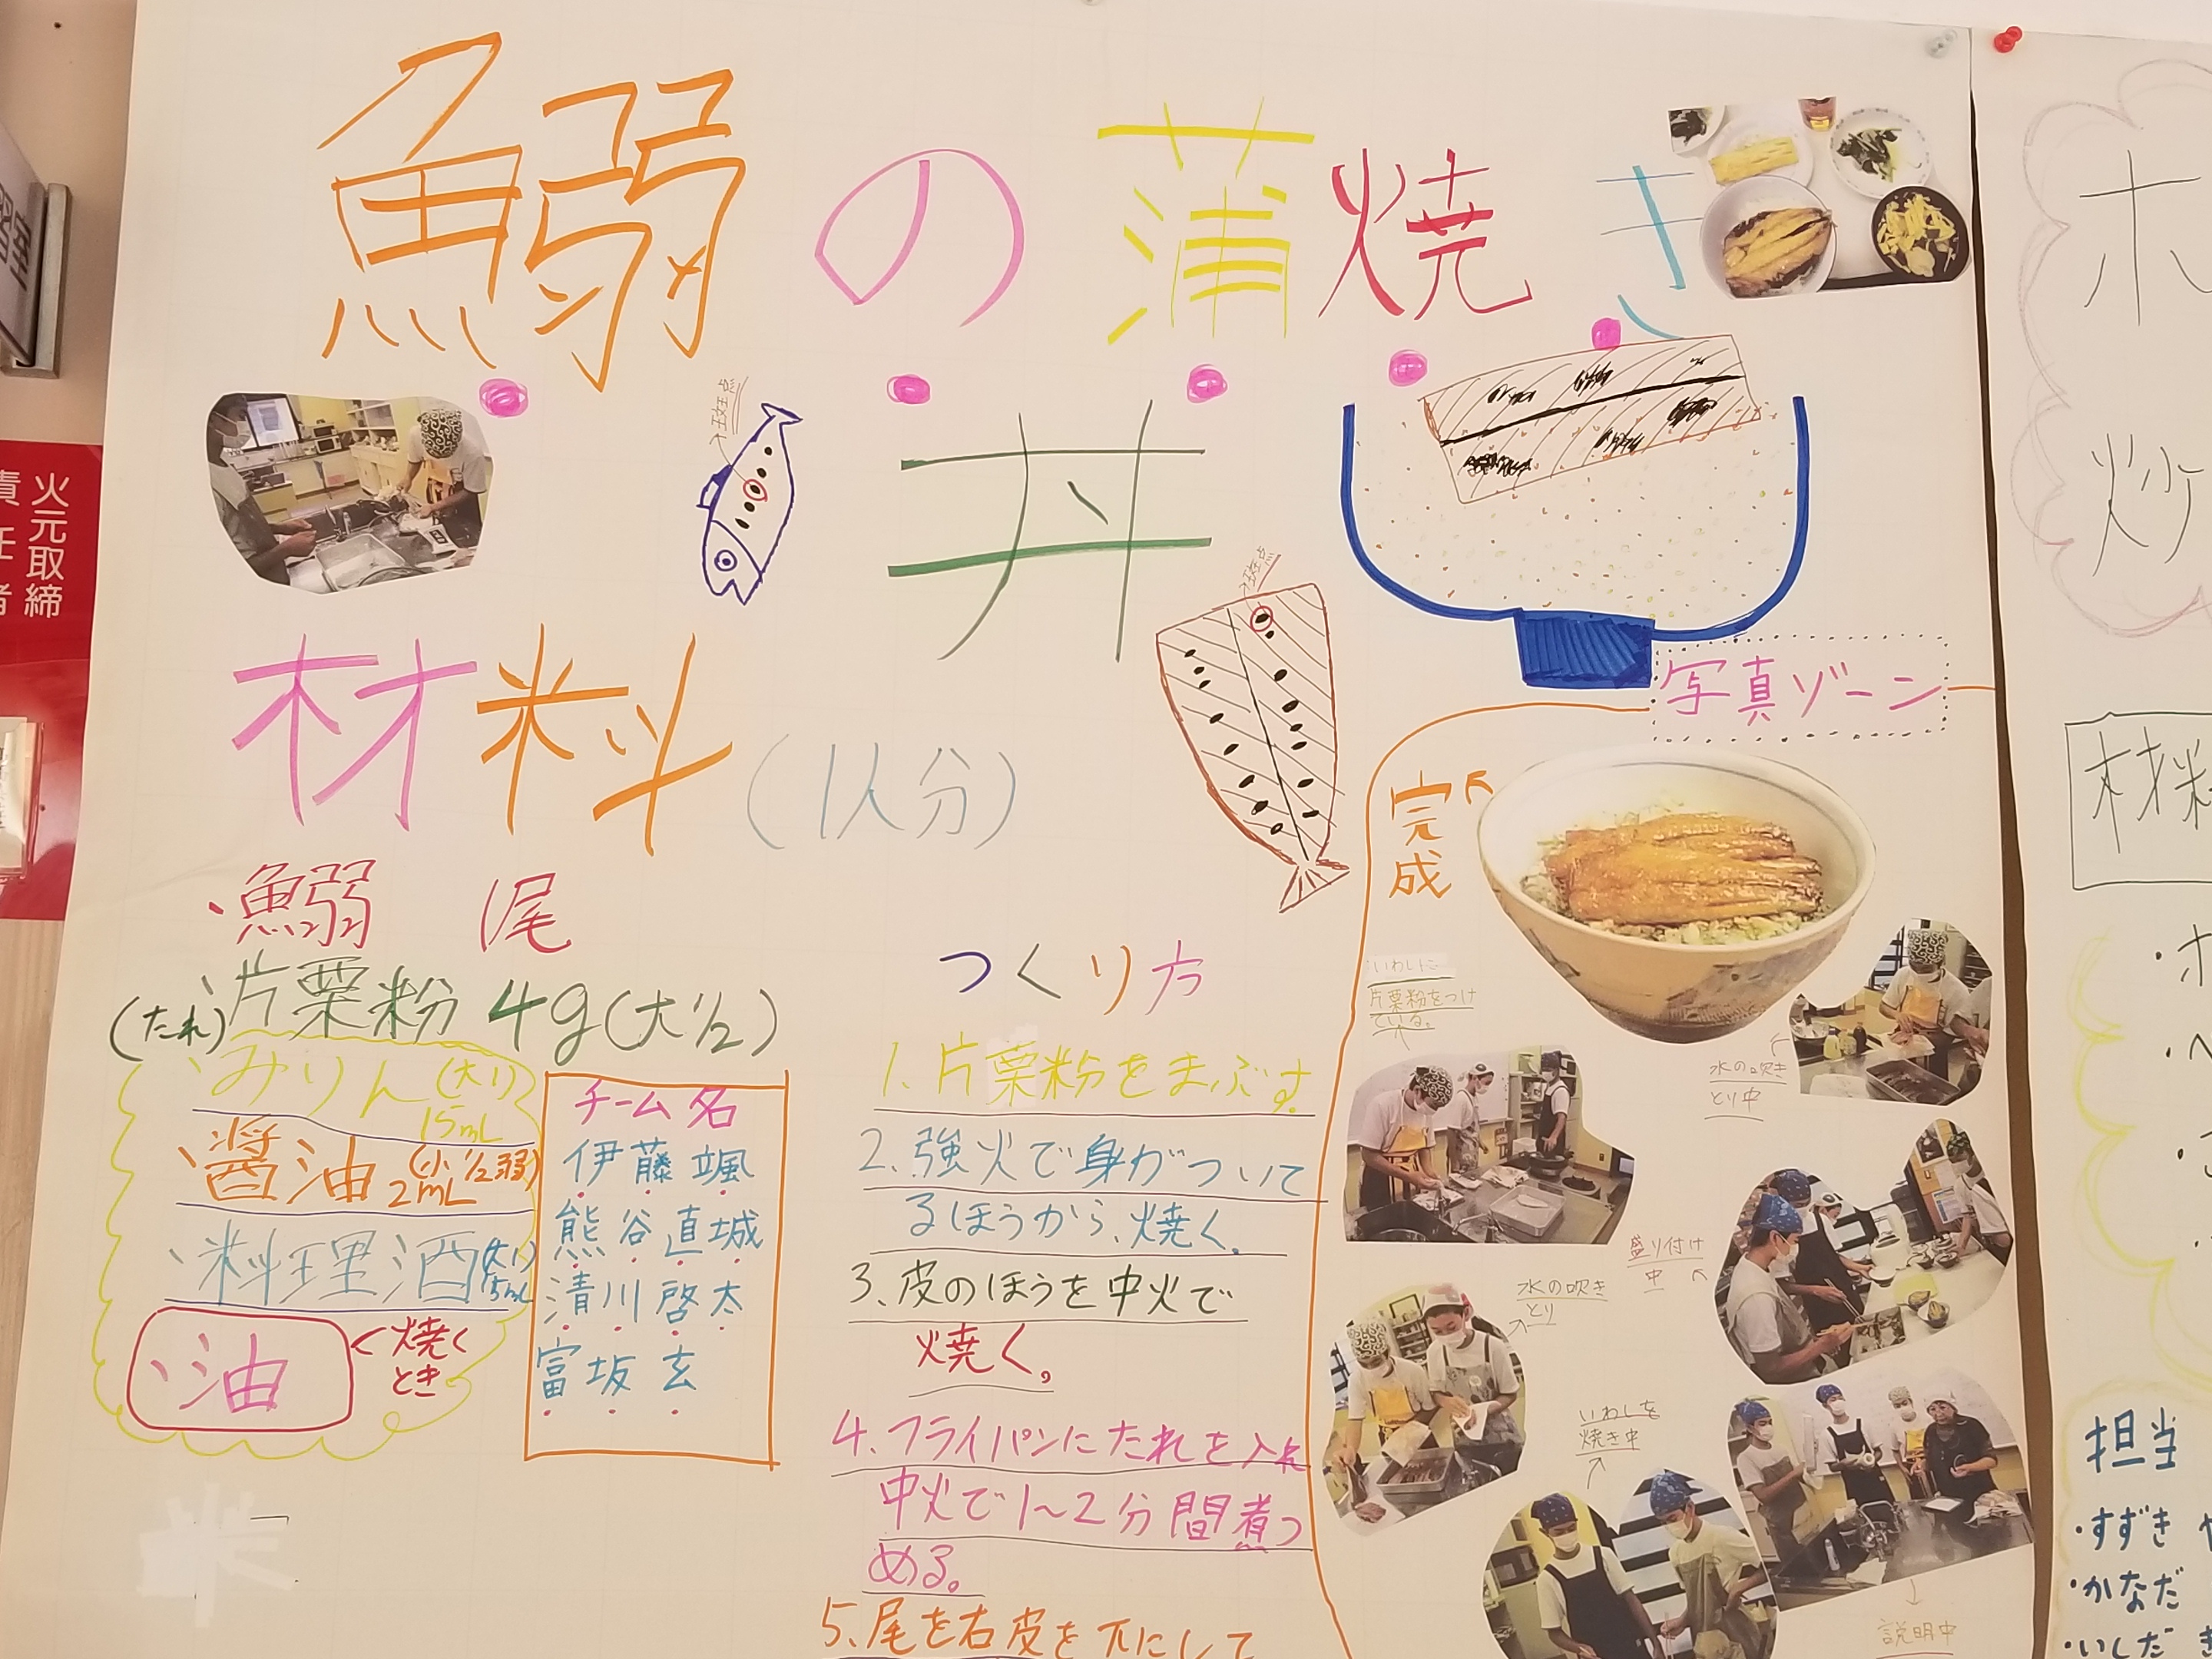 鰯の蒲焼き
丼
斑点
斑点
材料(1人分)
・鰯 1尾
・片栗粉 4g(大1/2)
(たれ)
・みりん(大1)
15mL
・醤油(小1/2弱)
2mL
・料理酒(大1)
15mL
・油
焼く
とき
チーム名
伊藤 颯
熊谷直城
清川啓太
富坂 玄
つくり方
1.片栗粉をまぶす。
2.強火で身がついて
るほうから、焼く。
3、皮のほうを中火で
焼く。
4、フライパンにたれを入れ
中火で1〜2分間煮つ
める。
5、尾を右皮を下にして
写真ゾーン
完成
いわしに
片栗粉をつけ
ている。
水の吹き
とり中
盛り付け
中
水の吹き
とり
いわしを
焼き中
説明中
火元取締
責任者
ホ
炒
材料
担当
・すずき
・かなだ
・いしだ